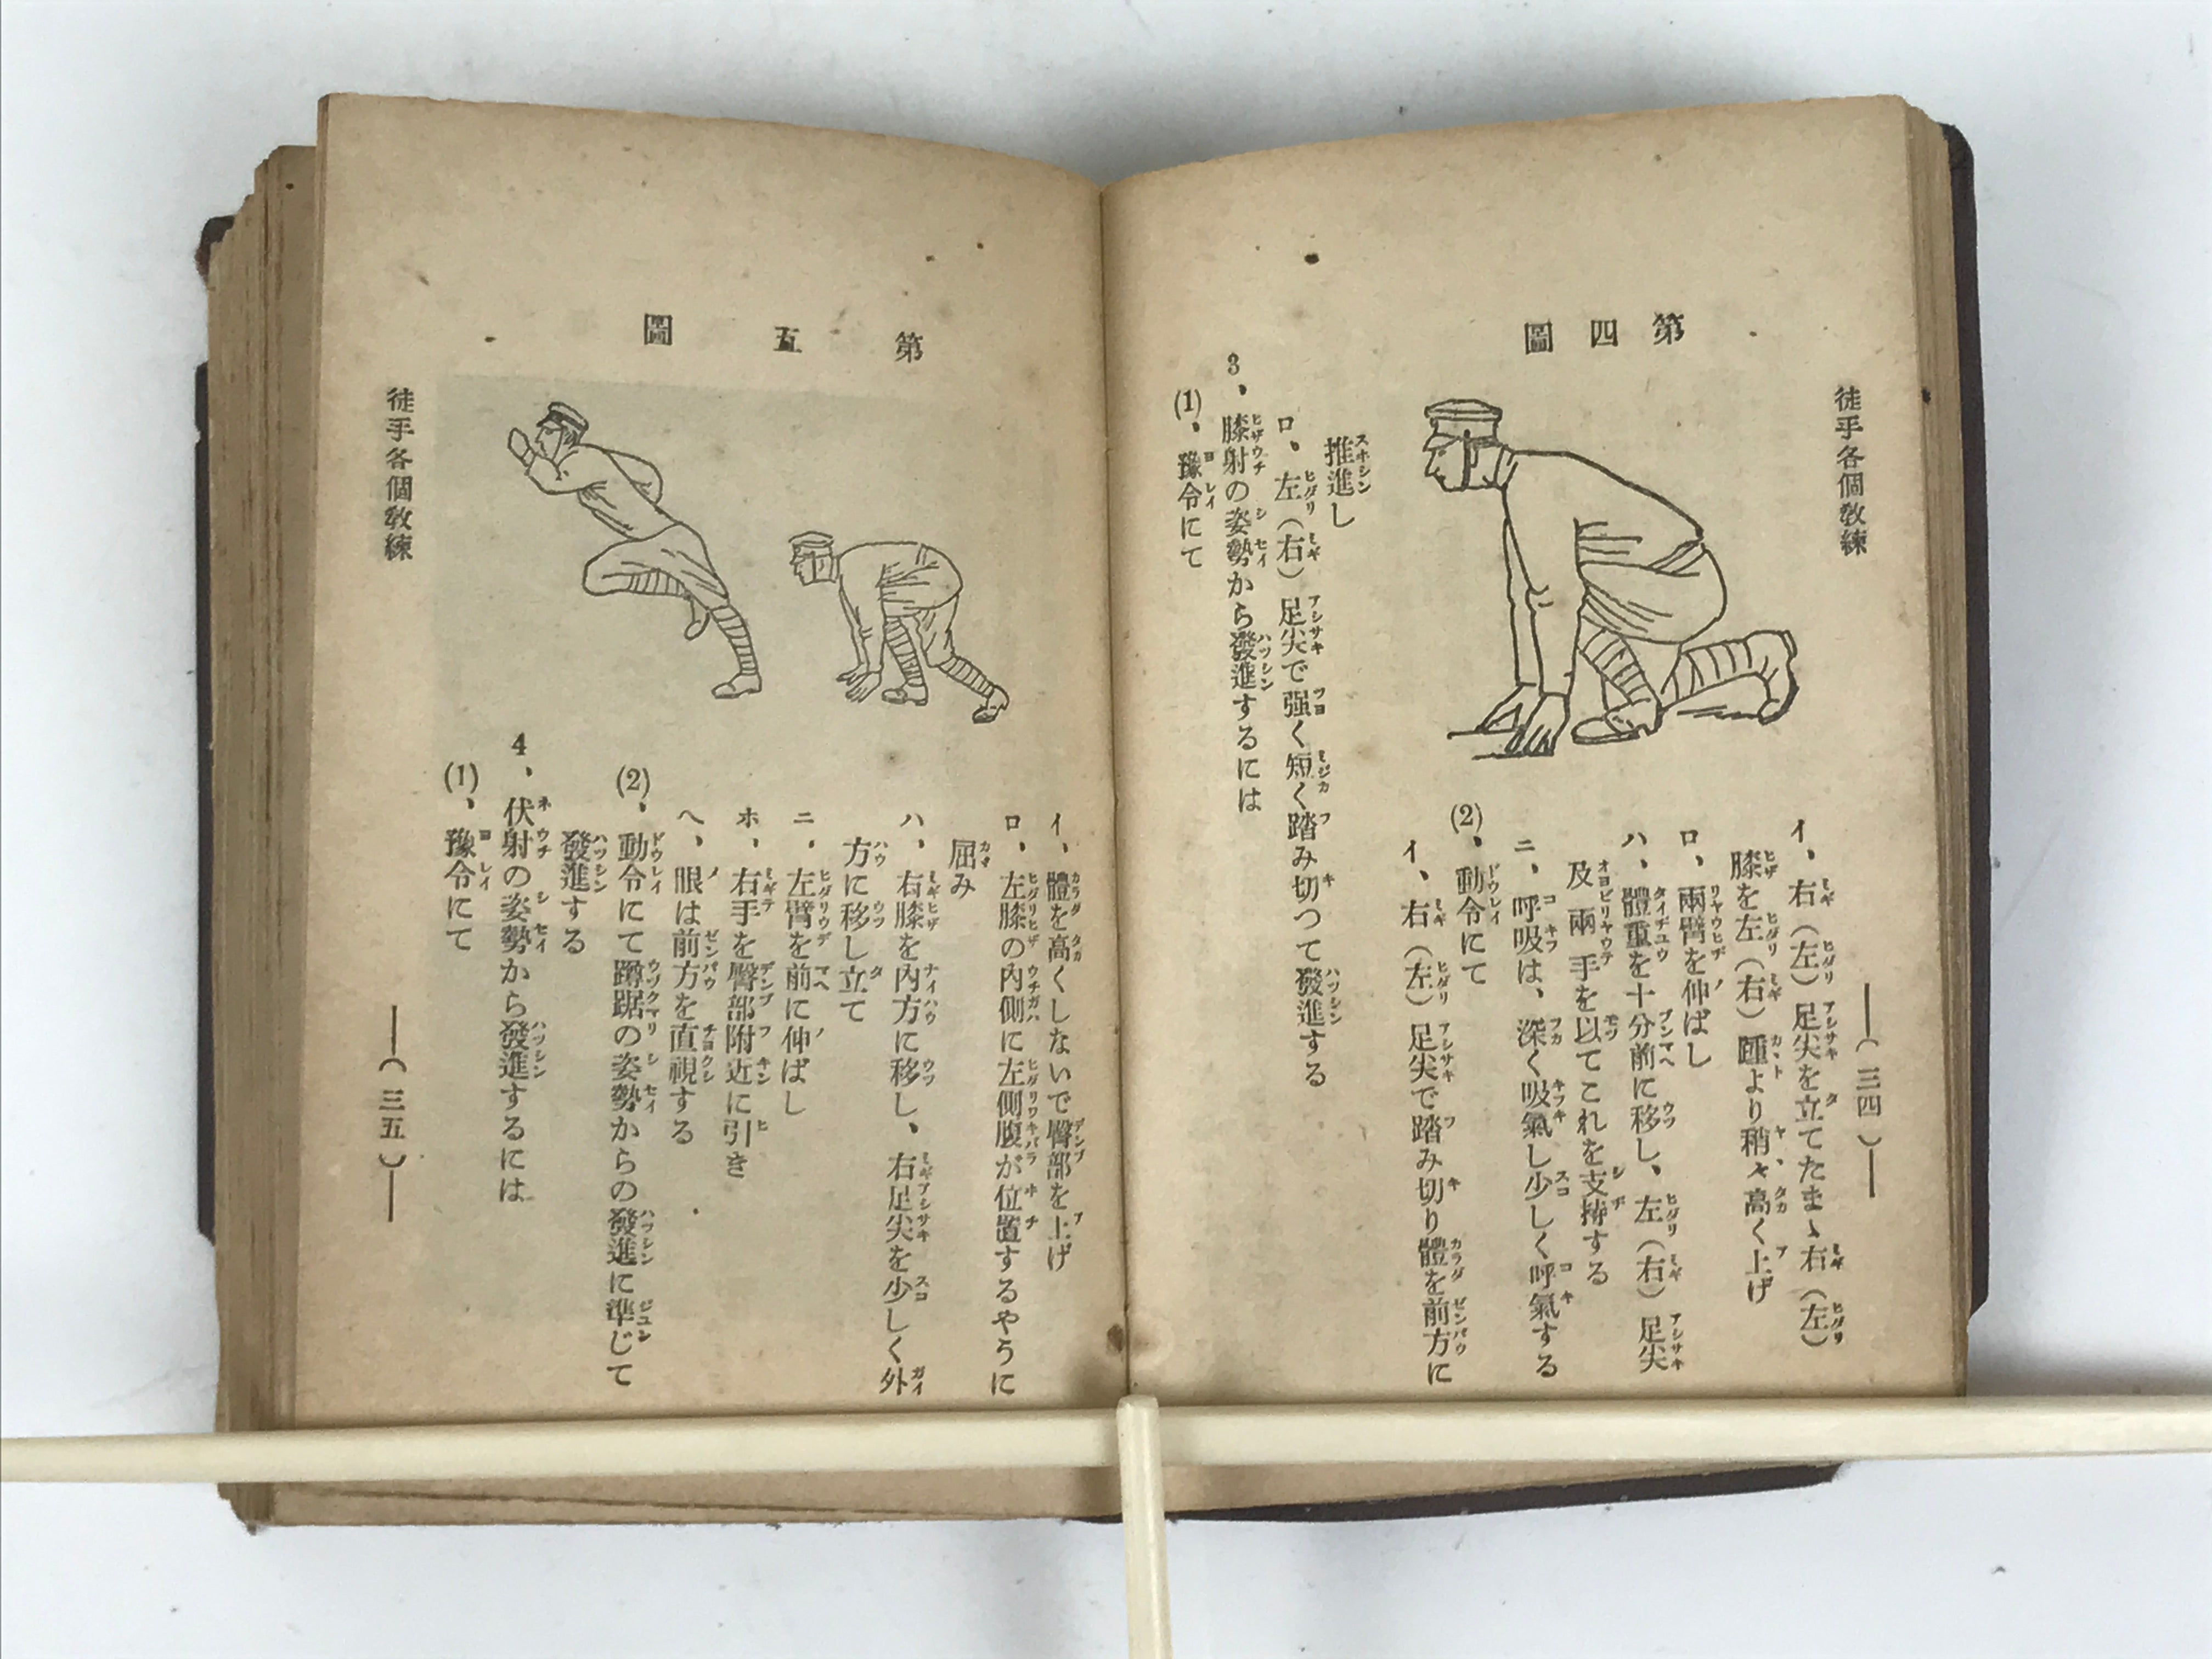 徒手各個敎練
(三四)
第四圖
イ、右(左)足尖を立てたまゝ右(左)
膝を左(右)踵より稍々高く上げ
ロ、兩臂を伸ばし
ハ、體重を十分前に移し、左(右)足尖
及兩手を以てこれを支持する
ニ、呼吸は、深く吸氣し少しく呼氣する
(2)、動令にて
イ、右(左)足尖で踏み切り體を前方に
推進し
ロ、左(右)足尖で强く短く踏み切つて發進する
3、膝射の姿勢から發進するには
(1)、豫令にて
第五圖
イ、體を高くしないで臀部を上げ
ロ、左膝の內側に左側腹が位置するやうに
屈み
ハ、右膝を內方に移し、右足尖を少しく外
方に移し立て
ニ、左臂を前に伸ばし
ホ、右手を臀部附近に引き
ヘ、眼は前方を直視する
(2)、動令にて蹲踞の姿勢からの發進に準じて
發進する
4、伏射の姿勢から發進するには
(1)、豫令にて
徒手各個敎練
(三五)